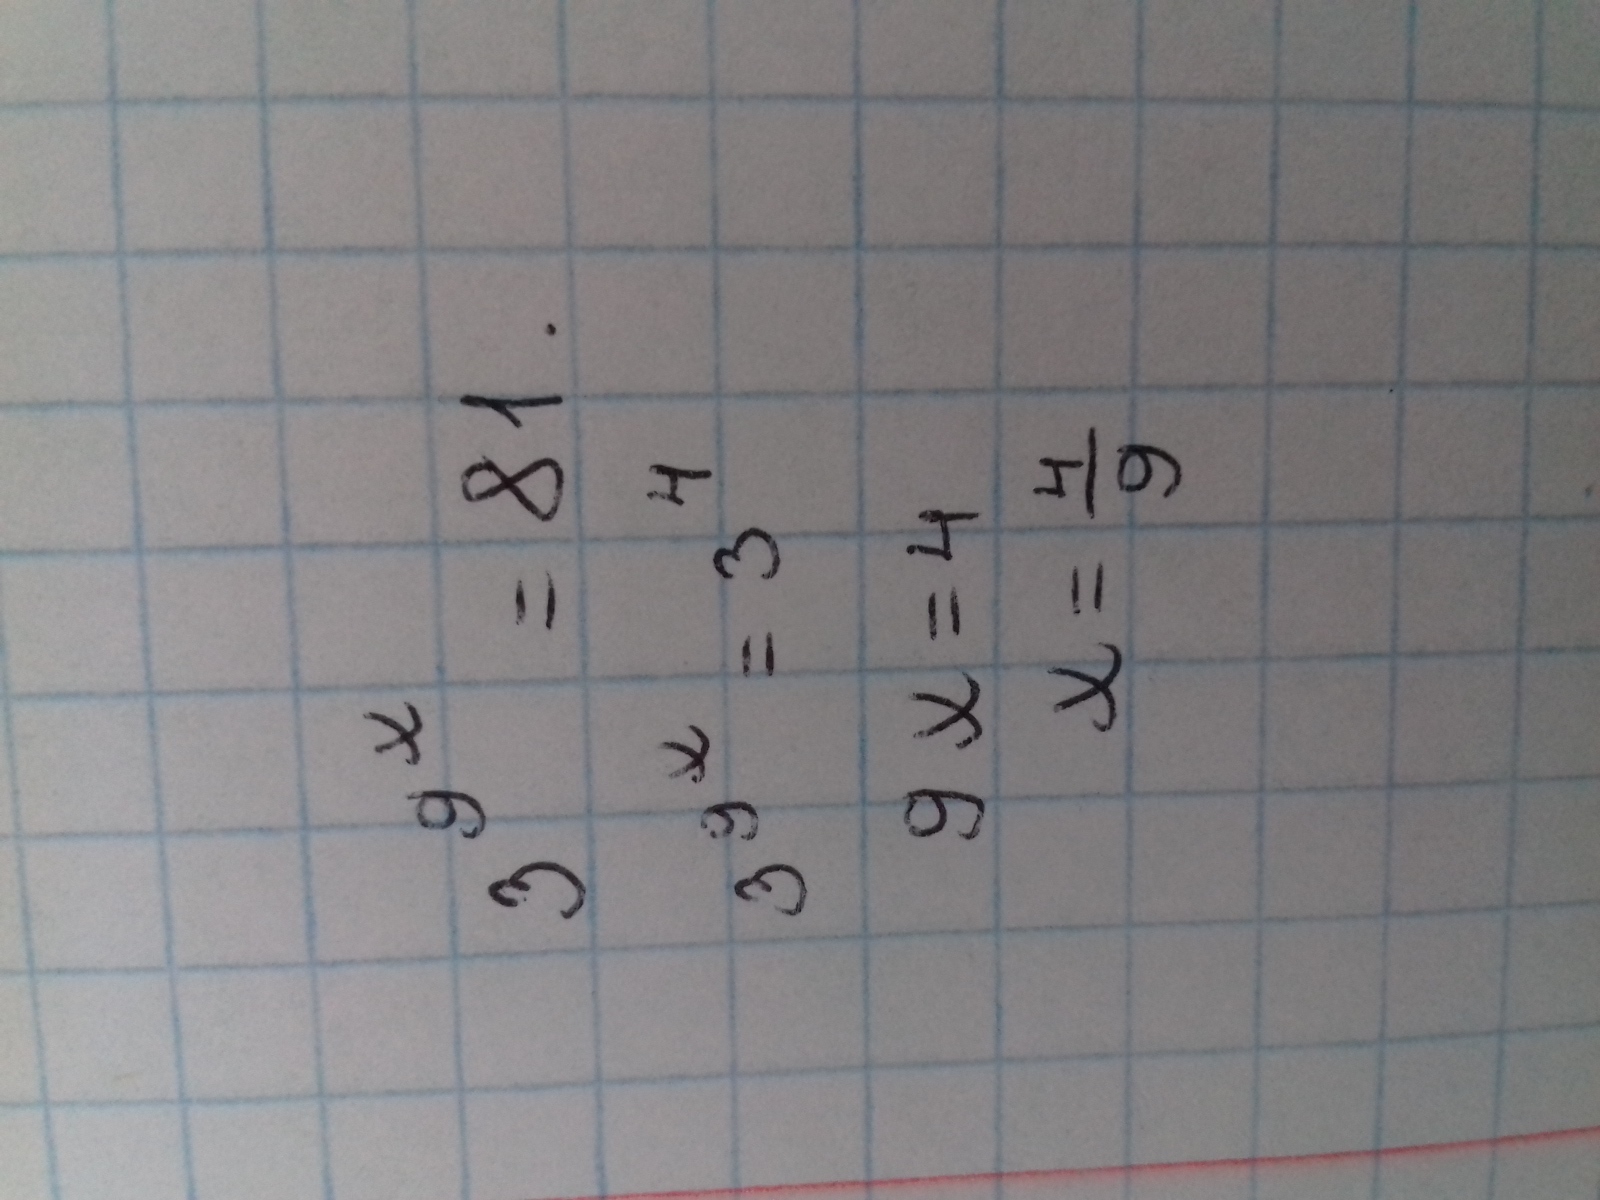 3^9^x = 81.
3^9^x = 3^4
9x = 4
x = 4/9